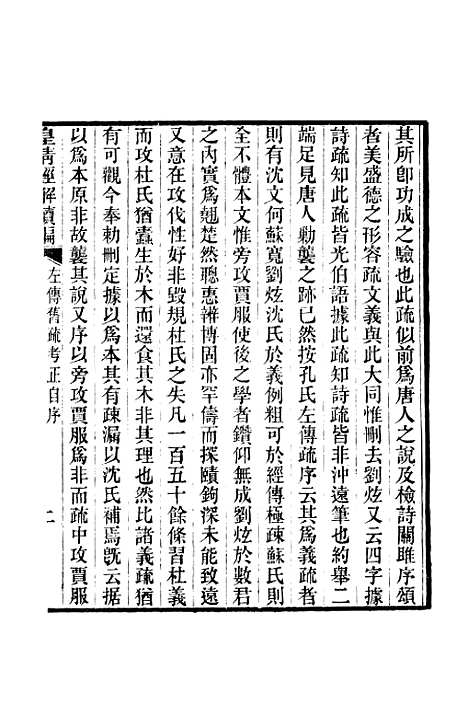 其所卽功成之驗也此疏似前爲唐人之說及檢詩關雎序頌
者美盛德之形容疏文義與此大同惟刪去劉炫又云四字據
詩疏知此疏皆光伯語據此疏知詩疏皆非沖遠筆也約舉二
端足見唐人勦襲之跡已然按孔氏左傳疏序云其爲義疏者
則有沈文何蘇寬劉炫沈氏於義例粗可於經傳極疎蘇氏則
全不體本文惟旁攻賈服使後之學者鑽仰無成劉炫於數君
之內實爲翹楚然聰惠辨博固亦罕儔而探賾鉤深未能致遠
又意在攻伐性好非毀規杜氏之失凡一百五十餘條習杜義
而攻杜氏猶蠹生於木而還食其木非其理也然比諸義疏猶
有可觀今奉勅刪定據以爲本其有疎漏以沈氏補焉旣云据
以爲本原非故襲其說又序以旁攻賈服爲非而疏中攻賈服
皇淸經解續編
左傳舊疏考正自序
二